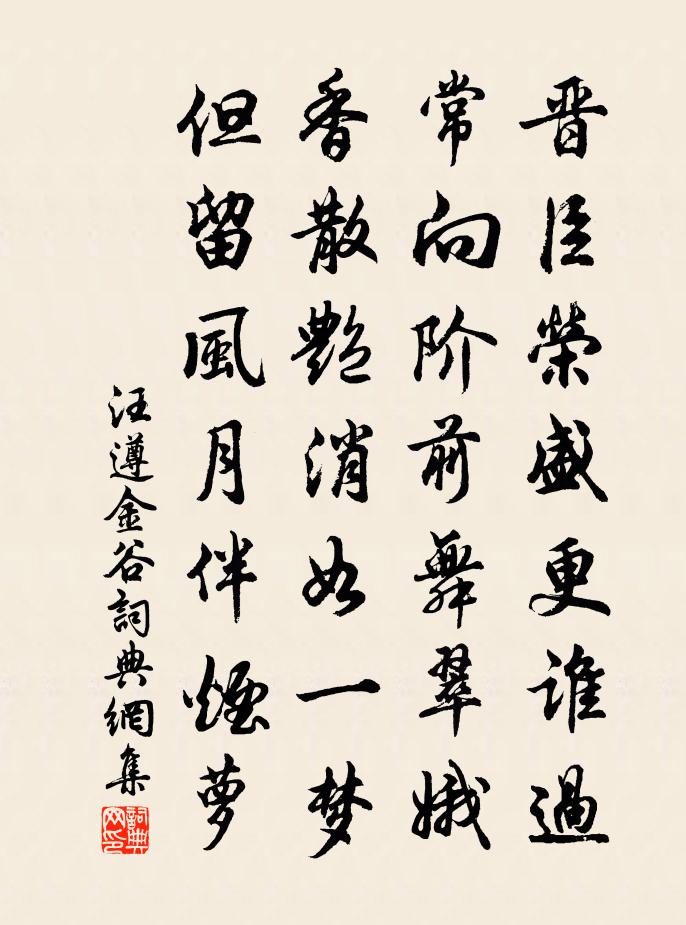 晋臣榮盛更誰過
常向阶前舞翠娥
香散艷消如一梦
但留風月伴煙萝
汪遵金谷詞典網集
詞典网印